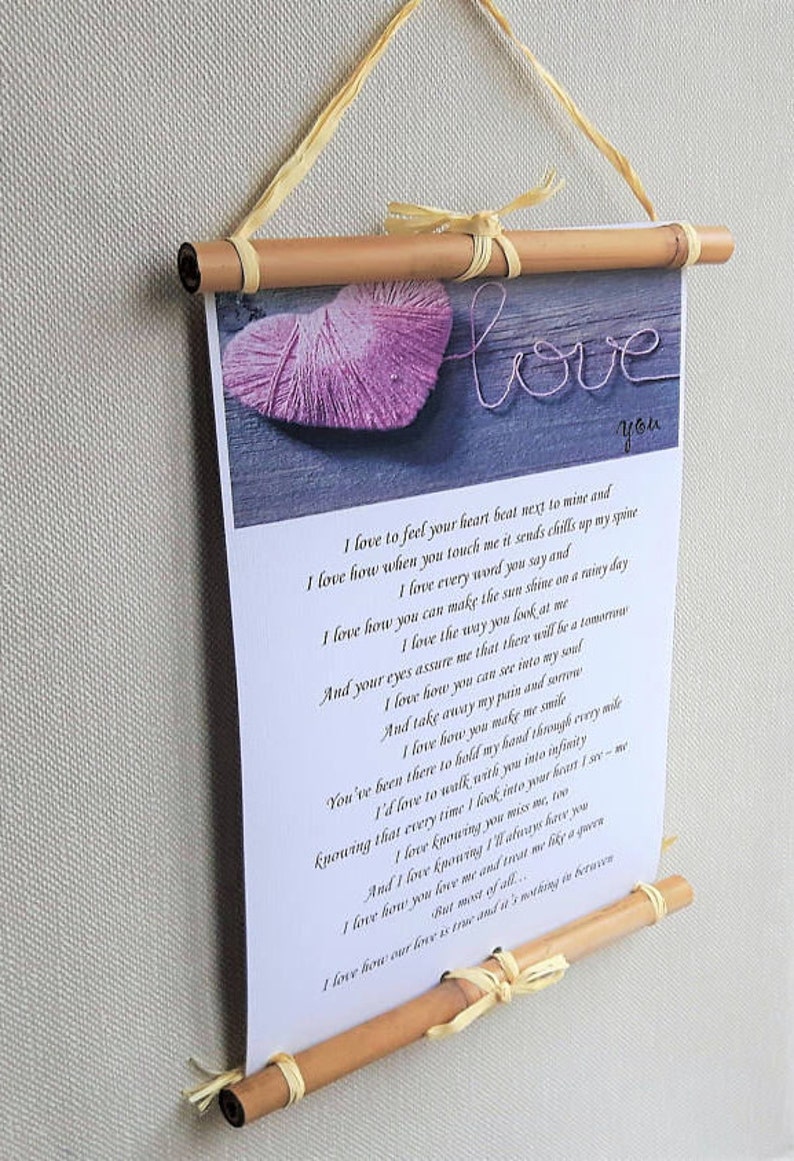 love
you
I love to feel your heart beat next to mine and
I love how when you touch me it sends chills up my spine
I love every word you say and
I love how you can make the sun shine on a rainy day
I love the way you look at me
And your eyes assure me that there will be a tomorrow
I love how you can see into my soul
And take away my pain and sorrow
I love how you make me smile
You've been there to hold my hand through every mile
I'd love to walk with you into infinity
knowing that every time I look into your heart I see – me
I love knowing you miss me, too
And I love knowing I'll always have you
I love how you love me and treat me like a queen
But most of all…
I love how our love is true and it's nothing in between